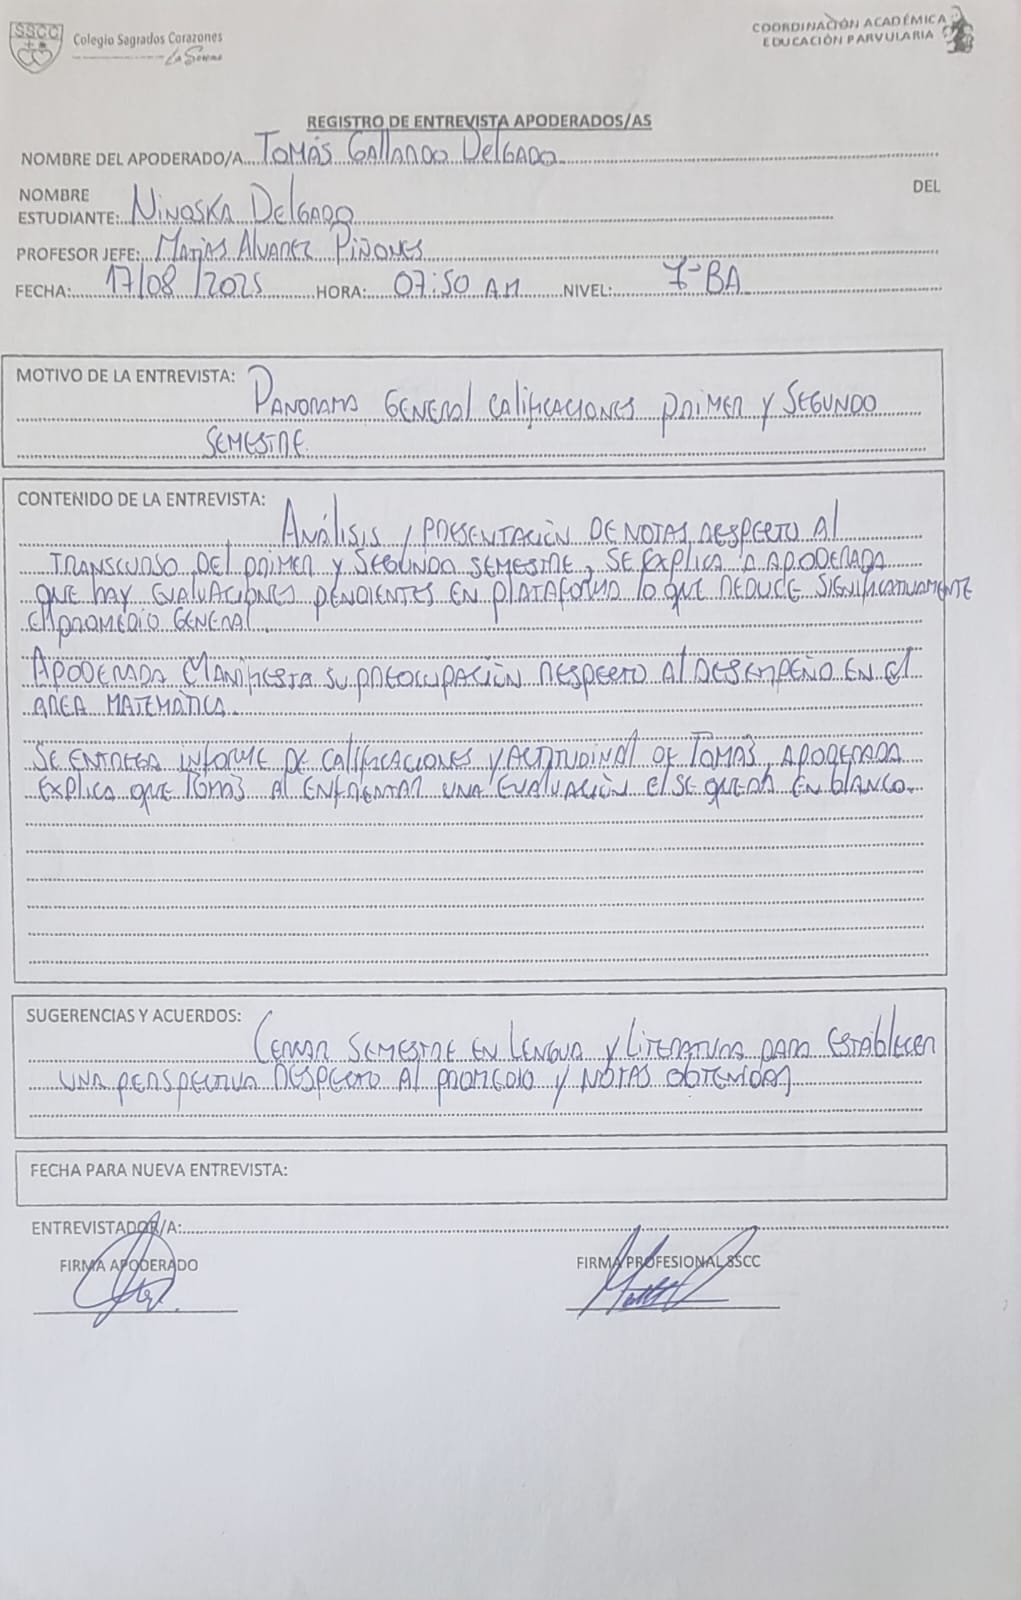 SSCC
Colegio Sagrados Corazones
La Serena
COORDINACIÓN ACADÉMICA
EDUCACIÓN PARVULARIA
REGISTRO DE ENTREVISTA APODERADOS/AS
NOMBRE DEL APODERADO/A Tomás Gallardo Delgado
NOMBRE DEL
ESTUDIANTE: Ninoska Delgado
PROFESOR JEFE: Matías Alvarez Piñones
FECHA: 17/08/2025 HORA: 07:50 AM NIVEL: 7°BA
MOTIVO DE LA ENTREVISTA: Panorama general calificaciones primer y segundo
semestre.
CONTENIDO DE LA ENTREVISTA:
Análisis y presentación de notas respecto al
transcurso del primer y segundo semestre, se explica a apoderada
que hay evaluaciones pendientes en plataforma lo que reduce significativamente
el promedio general.
Apoderada manifiesta su preocupación respecto al desempeño en el
area matemática.
Se entrega informe de calificaciones y actitudinal de Tomás, apoderada
explica que Tomás al enfrentar una evaluación el se queda en blanco.
SUGERENCIAS Y ACUERDOS:
Cerrar semestre en Lengua y Literatura para establecer
una perspectiva respecto al promedio y notas obtenidas
FECHA PARA NUEVA ENTREVISTA:
ENTREVISTADOR/A:
FIRMA APODERADO FIRMA PROFESIONAL SSCC